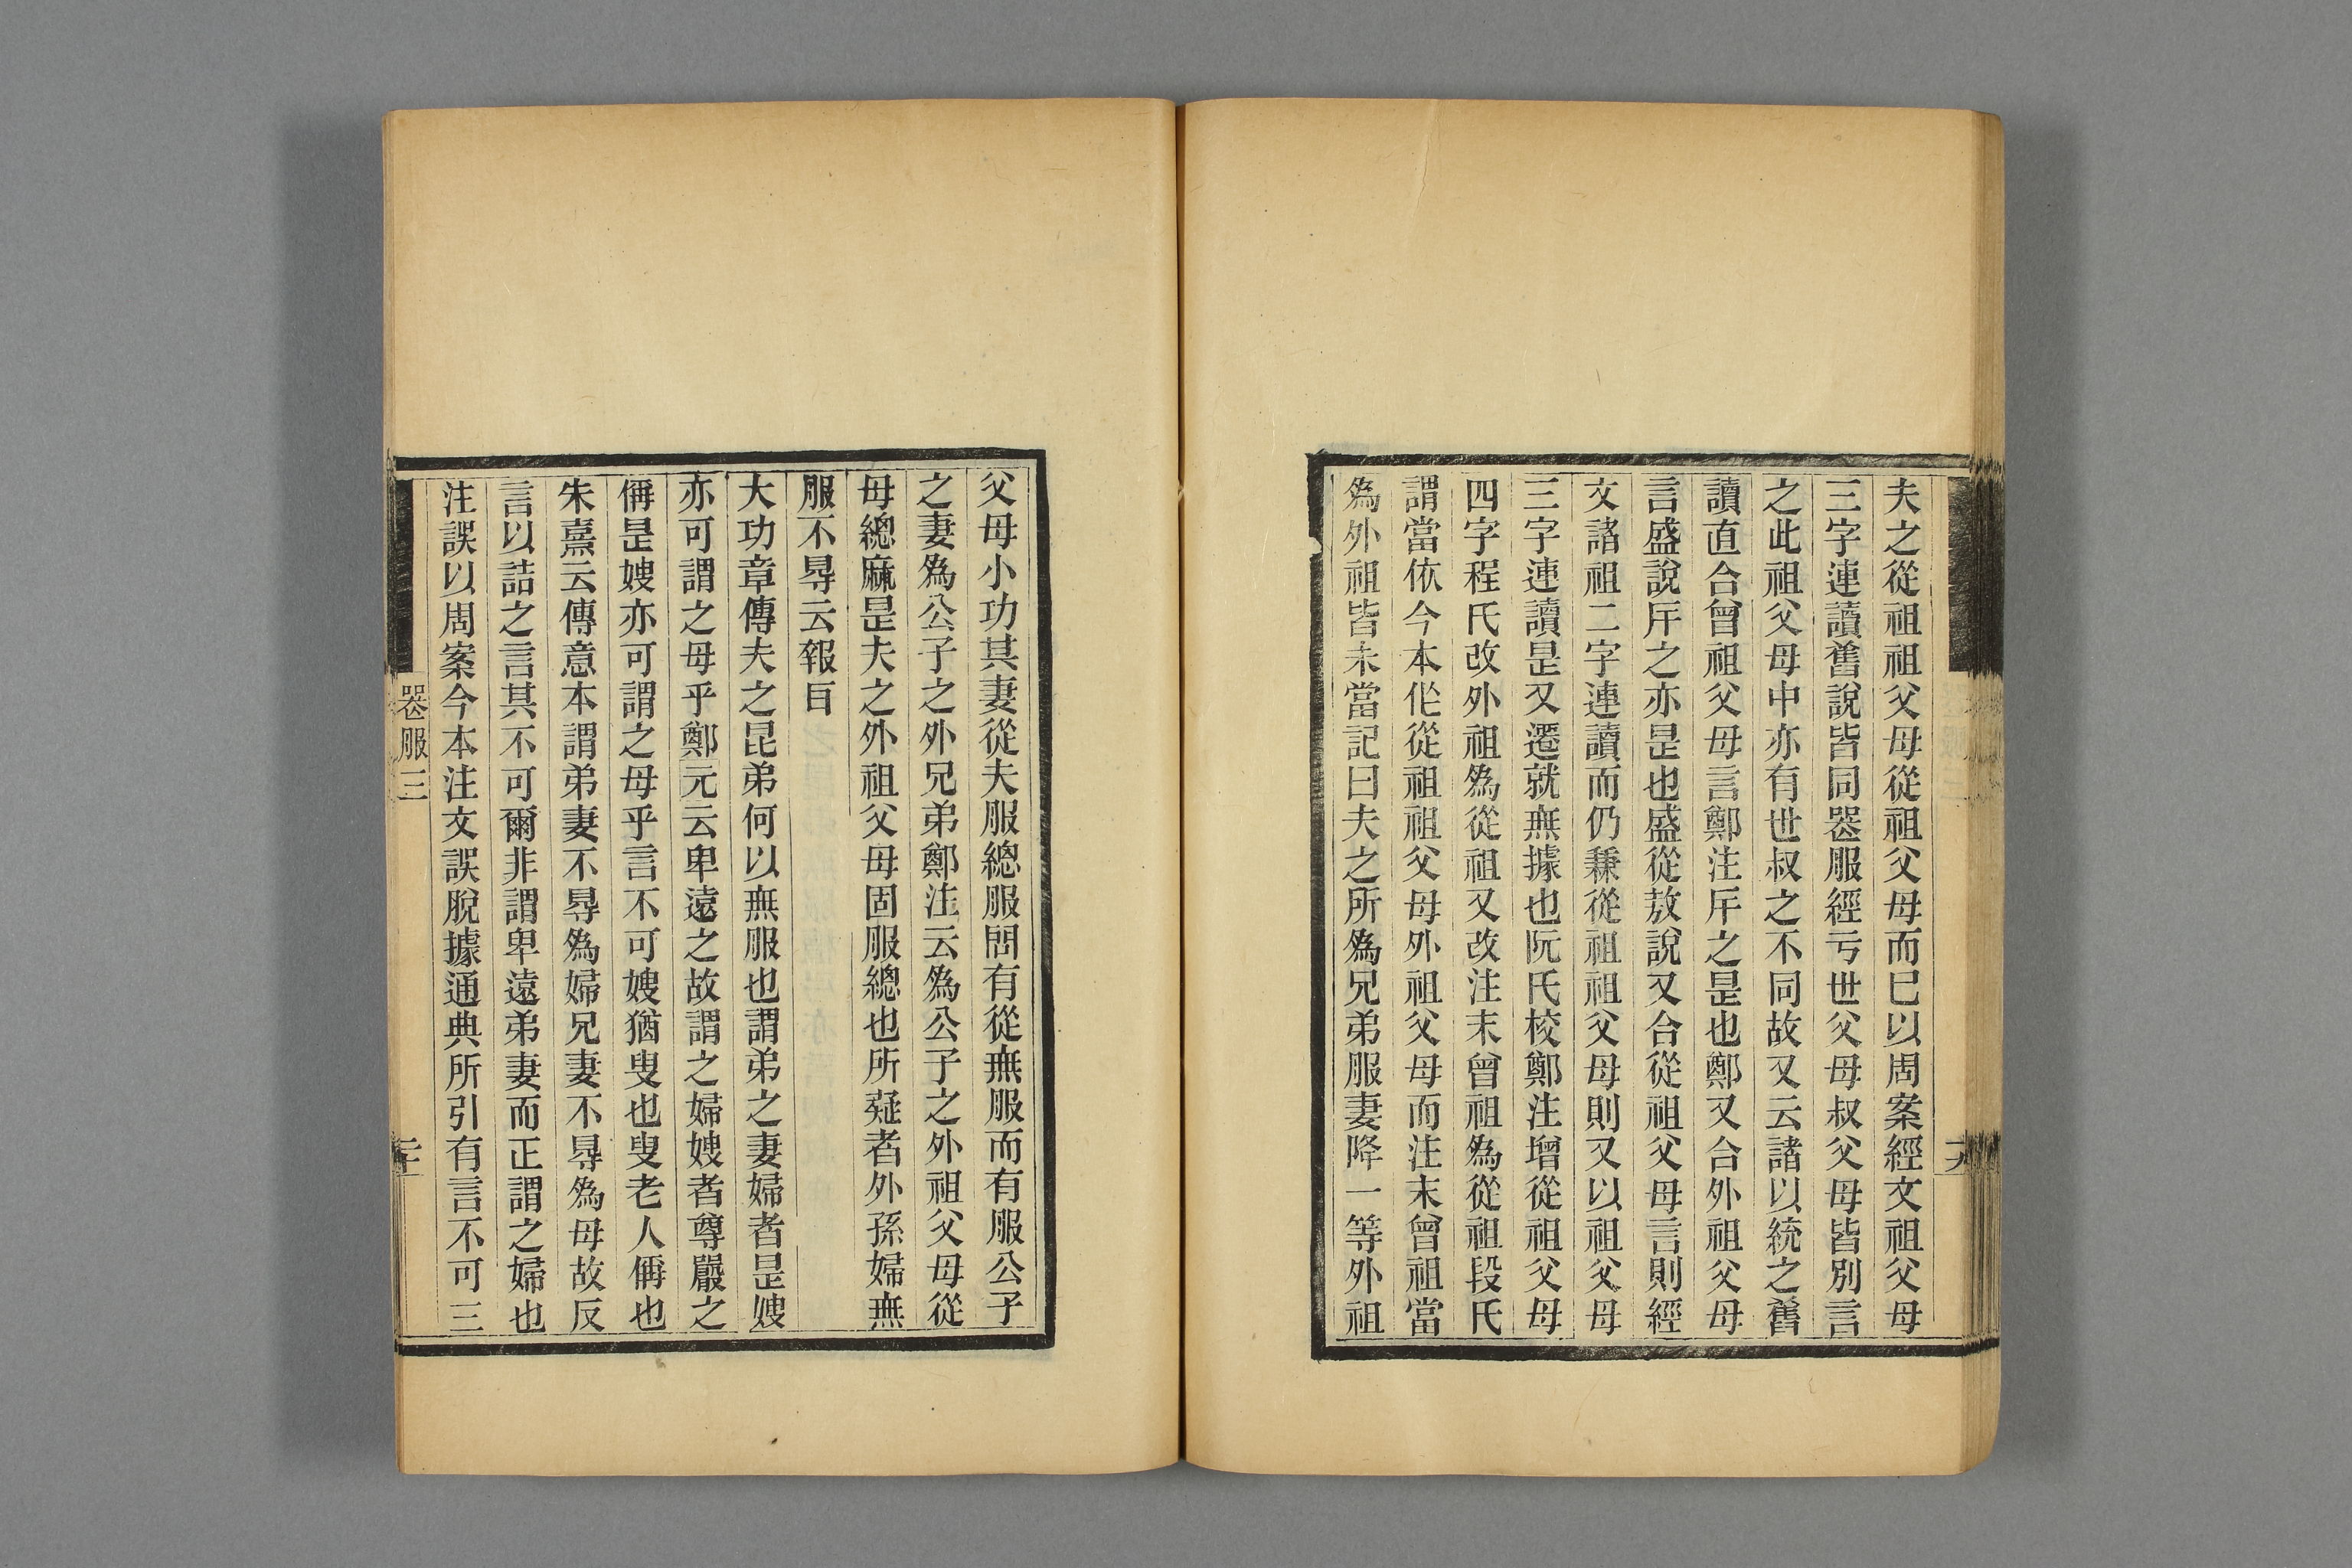 夫之從祖祖父母從祖父母而巳以周案經文祖父母
三字連讀舊說皆同喪服經亏世父母叔父母皆別言
之此祖父母中亦有世叔之不同故又云諸以統之舊
讀直合曾祖父母言鄭注斥之是也鄭又合外祖父母
言盛說斥之亦是也盛從敖說又合從祖父母言則經
文諸祖二字連讀而仍兼從祖祖父母則又以祖父母
三字連讀是又遷就無據也阮氏校鄭注增從祖父母
四字程氏改外祖爲從祖又改注末曾祖爲從祖段氏
謂當依今本作從祖祖父母外祖父母而注末曾祖當
爲外祖皆未當記曰夫之所爲兄弟服妻降一等外祖
父母小功其妻從夫服緦服問有從無服而有服公子
之妻爲公子之外兄弟鄭注云爲公子之外祖父母從
母緦麻是夫之外祖父母固服緦也所疑者外孫婦無
服不得云報耳
大功章傳夫之昆弟何以無服也謂弟之妻婦者是嫂
亦可謂之母乎鄭元云卑遠之故謂之婦嫂者尊嚴之
偁是嫂亦可謂之母乎言不可嫂猶叟也叟老人偁也
朱熹云傳意本謂弟妻不得爲婦兄妻不得爲母故反
言以詰之言其不可爾非謂卑遠弟妻而正謂之婦也
注誤以周案今本注文誤脫據通典所引有言不可三
喪服三
二十